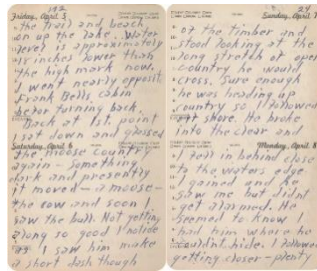 192
Friday, April 5
the trail and beach
on up the lake. Water
level is approximately
six inches lower than
the high mark now.
I went nearly opposite
Frank Bells cabin
before turning back.
Back at 1st. point
sat down and glassed
Saturday, April 6
the moose country
again - Something
dark and presently
it moved - a moose -
the cow and soon I
saw the bull. Not getting
along so good I notice
I saw him make
a short dash though
24
Sunday, April 7
of the timber and
stood looking at the
long stretch of open
country he would
cross. Sure enough
he was heading up
country so I followed
shore. He broke
into the clear and
Monday, April 8
I fell in behind close
to the waters edge.
I gained and he
saw me but didnt
get alarmed. He
seemed to know I
had him where he
couldnt hide. I followed
getting closer - plenty